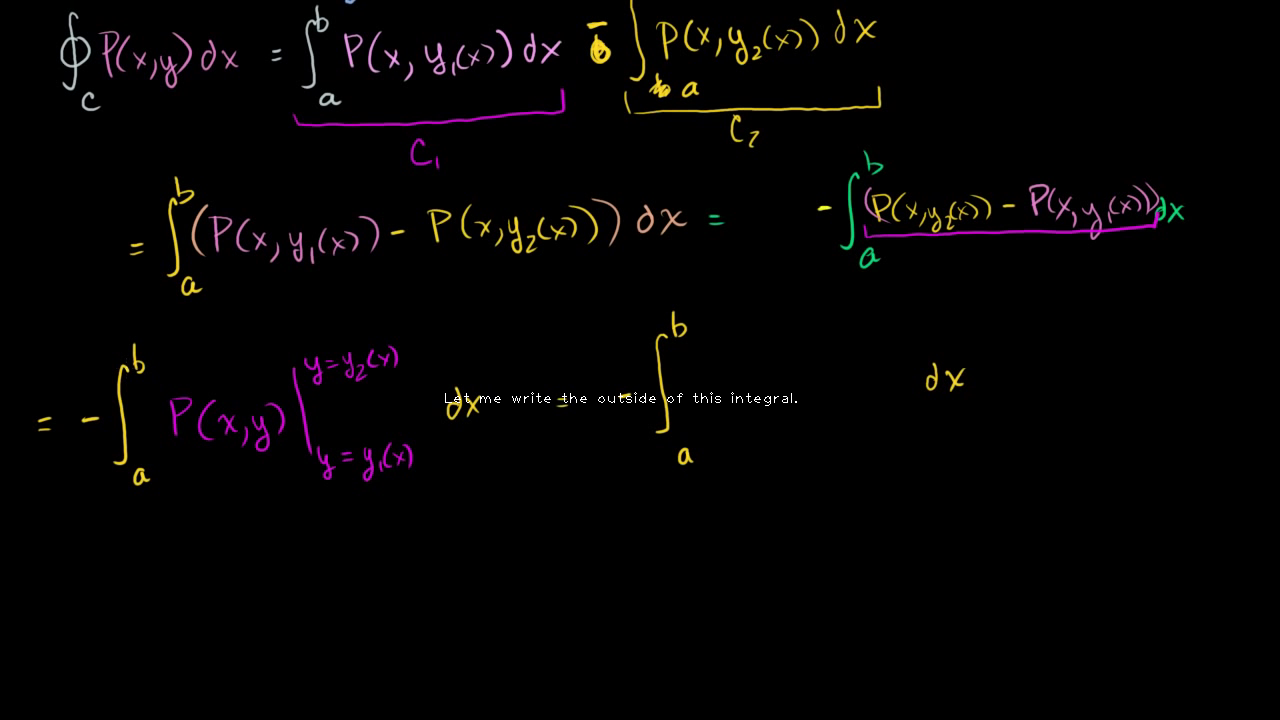 ∮_C P(x,y) dx = ∫_a^b P(x, y₁(x)) dx - ∫_a P(x, y₂(x)) dx
C₁ C₂
= ∫_a^b (P(x, y₁(x)) - P(x, y₂(x))) dx = - ∫_a^b (P(x, y₂(x)) - P(x, y₁(x))) dx
= - ∫_a^b P(x,y) |_{y = y₁(x)}^{y = y₂(x)} dx = - ∫_a^b dx
Let me write the outside of this integral.